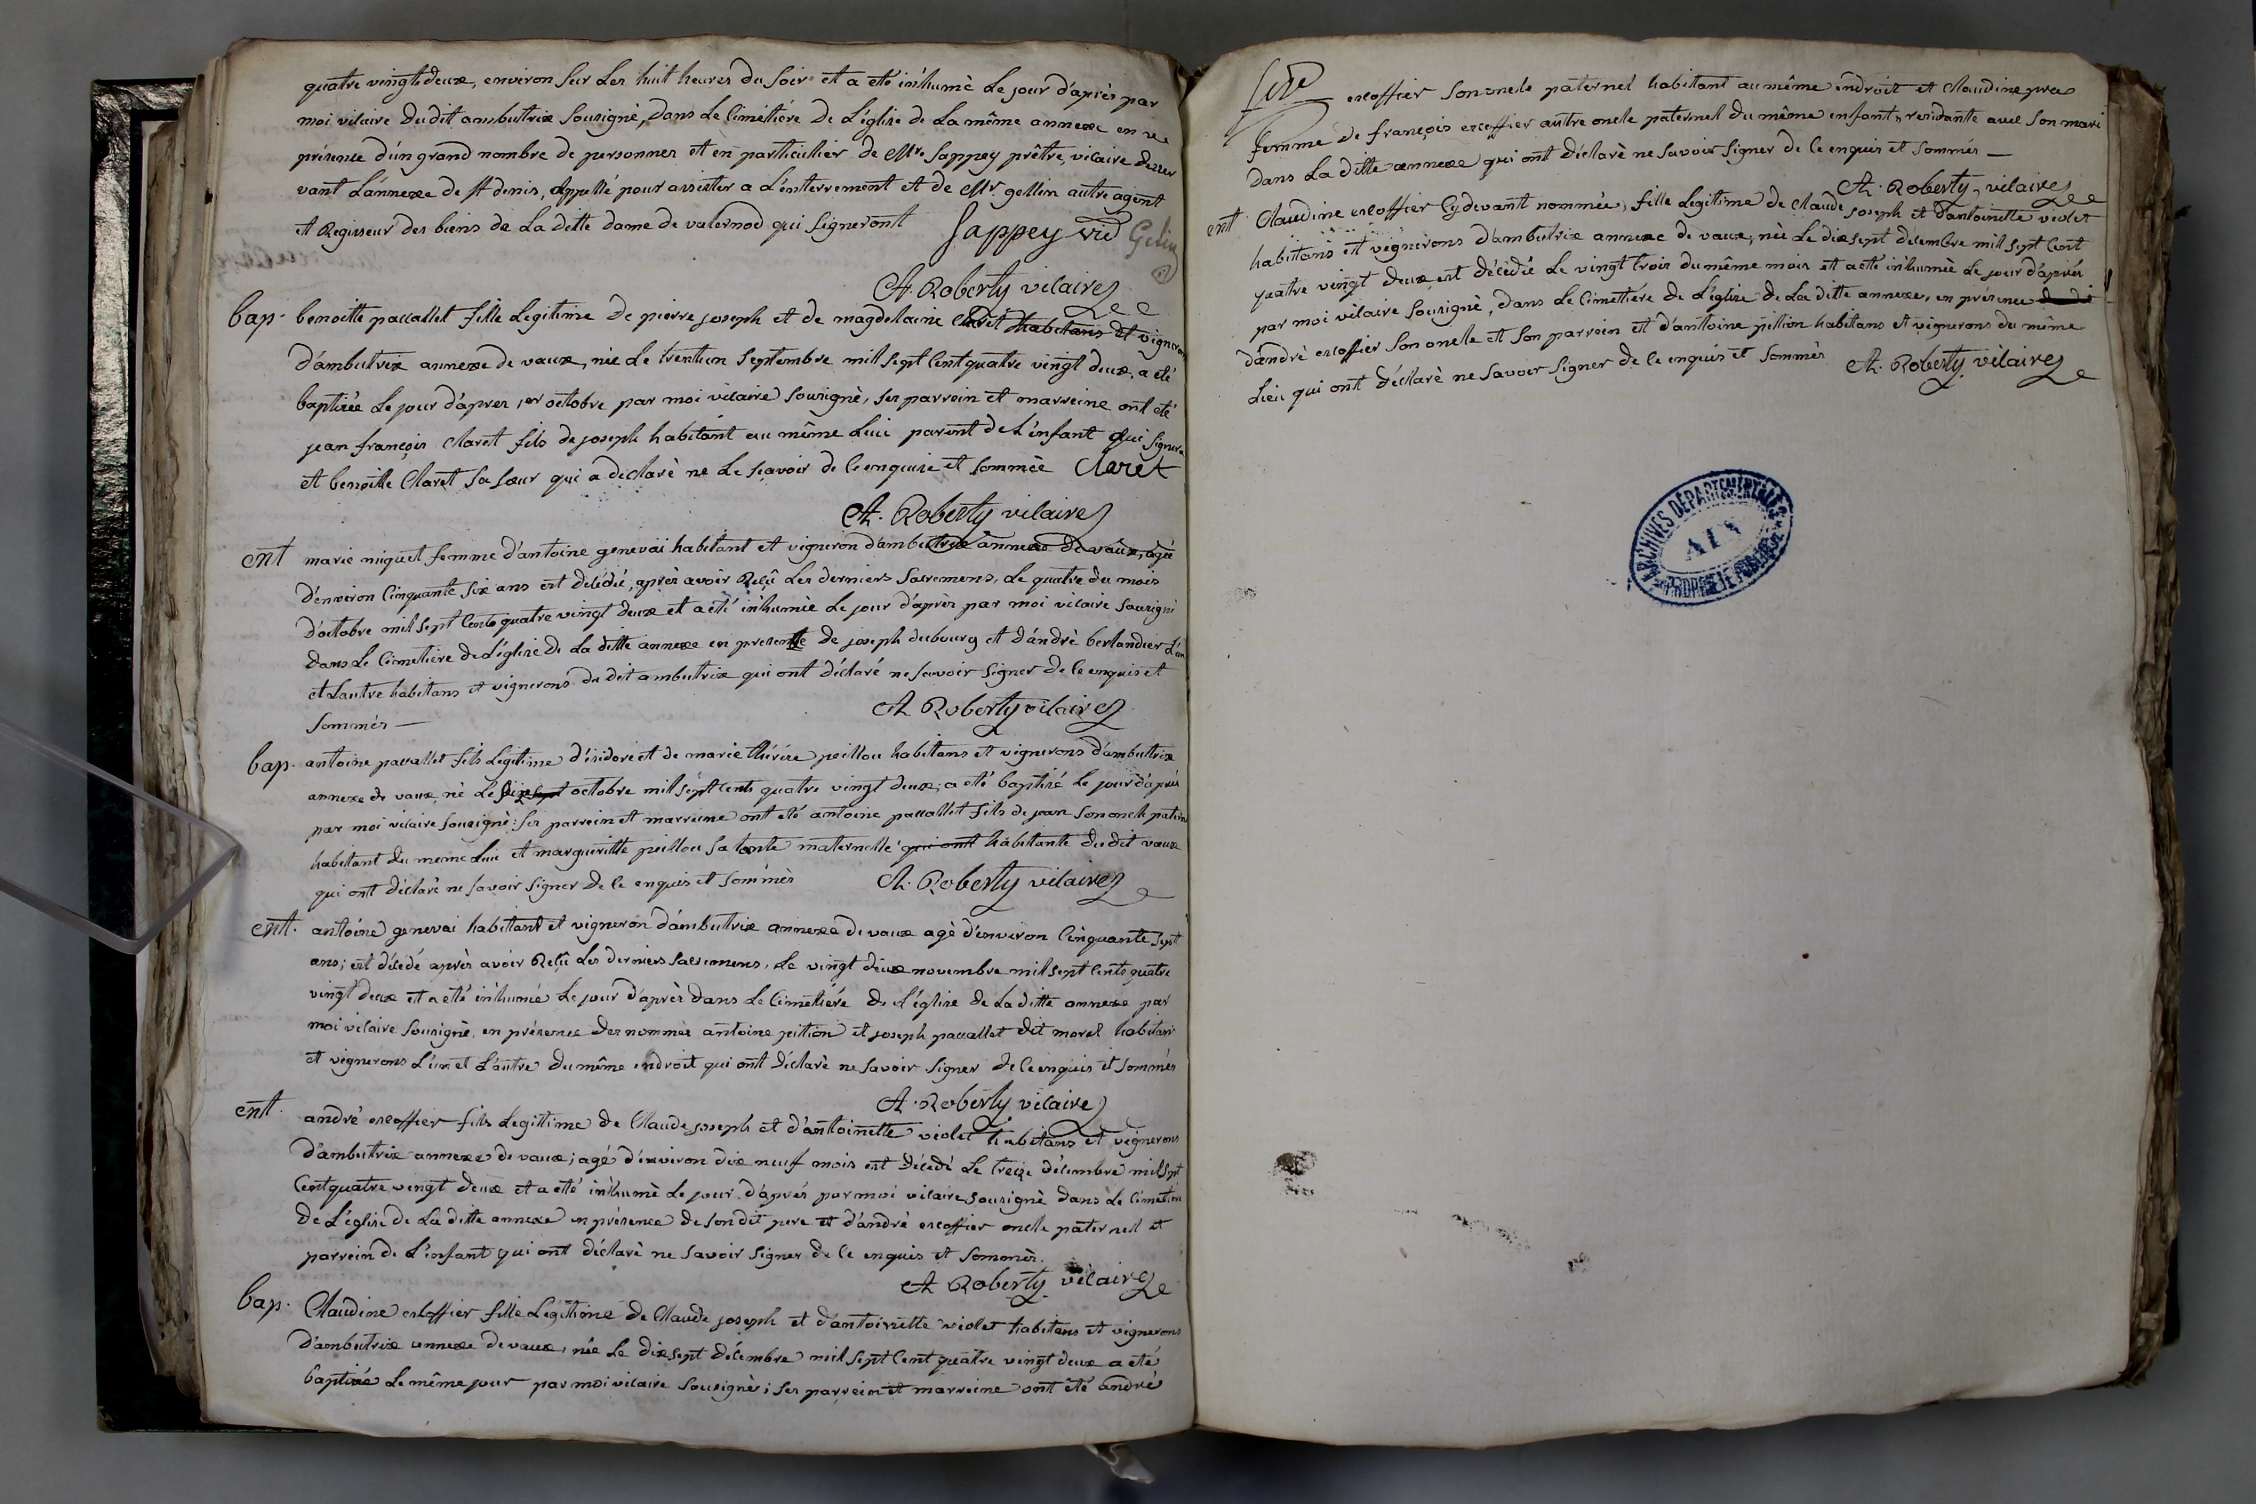 quatre vingt deux, environ sur les huit heures du soir et a été inhumé le jour d'après par
moi vicaire dudit ambutrix sousigné, dans le cimetiére de l'église de la même annexe en
présence d'un grand nombre de personnes et en particulier de Mre sappey prêtre vicaire desser
vant l'annexe de st denis, appellé pour assister a l'enterrement et de Mr gellin autre agent
et Regisseur des biens de la ditte dame de valernod qui signeront Sappey vic Gelin
A. Roberty vicaire
bap. benoitte paccallet fille legitime de pierre joseph et de magdelaine claret habitans et vignerons
d'ambutrix annexe de vaux, née le trentiun septembre mill sept cent quatre vingt deux, a été
baptisée le jour d'apres, 1er octobre par moi vicaire sousigné, ses parrein et marreine ont été
jean françois claret fils de joseph habitant au même lieu parent de l'enfant qui signera
et benoitte Claret sa sœur qui a déclaré ne le sçavoir de ce enquise et sommée Claret
A. Roberty vicaire
ent marie miquet femme d'antoine genevai habitant et vigneron d'ambutrix annexe de vaux, agée
d'environ cinquante six ans est décédée, après avoir Reçû les derniers sacremens, le quatre du mois
d'octobre mil sept cents quatre vingt deux et a été inhumée le jour d'après par moi vicaire sousigné
dans le cimetiere de l'église de la ditte annexe en presence de joseph dubourg et d'andré berlandier l'un
et l'autre habitans et vignerons du dit ambutrix qui ont déclaré ne savoir signer de ce enquis et
sommés —
A Roberty vicaire
bap. antoine paccallet fils legitime d'isidore et de marie thérése peillou habitans et vignerons d'ambutrix
annexe de vaux, né le octobre mil sept cents quatre vingt deux, a été baptisé le jour d'après
par moi vicaire sousigné: ses parrein et marreine ont été antoine paccallet fils de jean son oncle patern
habitant du meme lieu et margueritte peillou sa tante maternelle qui ont habitante dudit vaux
qui ont déclaré ne savoir signer de ce enquis et sommés A. Roberty vicaire
ent. antoine genevai habitant et vigneron d'ambutrix annexe de vaux agé d'environ cinquante sept
ans; est décédé après avoir Reçû les derniers sacremens, le vingt deux novembre mil sept cents quatre
vingt deux et a été inhumé le jour d'après dans le cimetiére de l'église de la ditte annexe par
moi vicaire sousigné, en présence des nommés antoine pittion et joseph paccallet dit morel habitans
et vignerons l'un et l'autre du même endroit qui ont déclaré ne savoir signer de ce enquis et sommés
A. Roberty vicaire
ent. andré escoffier fils legittime de Claude joseph et d'antoinette violet habitans et vignerons
d'ambutrix annexe de vaux; agé d'environ dix neuf mois est décédé le treize décembre mil sept
cent quatre vingt deux et a été inhumé le jour d'après par moi vicaire sousigné dans le cimetiére
de l'église de la ditte annexe en présence de son dit pere et d'andré escoffier oncle paternel et
parrein de l'enfant qui ont déclaré ne savoir signer de ce enquis et sommés.
A Roberty vicaire
bap. Claudine escoffier fille legitime de Claude joseph et d'antoinette violet habitans et vignerons
d'ambutrix annexe de vaux, née le dix sept décembre mil sept cent quatre vingt deux a été
baptisée le même jour par moi vicaire sousigné; ses parrein et marreine ont été andré
escoffier son oncle paternel habitant au même endroit et Claudine
femme de françois escoffier autre oncle paternel du même enfant, residante avec son mari
dans la ditte annexe qui ont déclaré ne savoir signer de ce enquis et sommés —
A. Roberty vicaire
ent Claudine escoffier cy devant nommée, fille legitime de claude joseph et d'antoinette violet
habitans et vignerons d'ambutrix annexe de vaux, née le dix sept decembre mill sept cent
quatre vingt deux est décédée le vingt trois du même mois et a été inhumée le jour d'après
par moi vicaire sousigné, dans le cimetiére de l'église de la ditte annexe, en présence
d'andré escoffier son oncle et son parrein et d'antoine pittion habitans et vignerons du même
lieu qui ont déclaré ne savoir signer de ce enquis et sommés A. Roberty vicaire
ARCHIVES DÉPARTEMENTALES
AIN
PROPRIÉTÉ PUBLIQUE